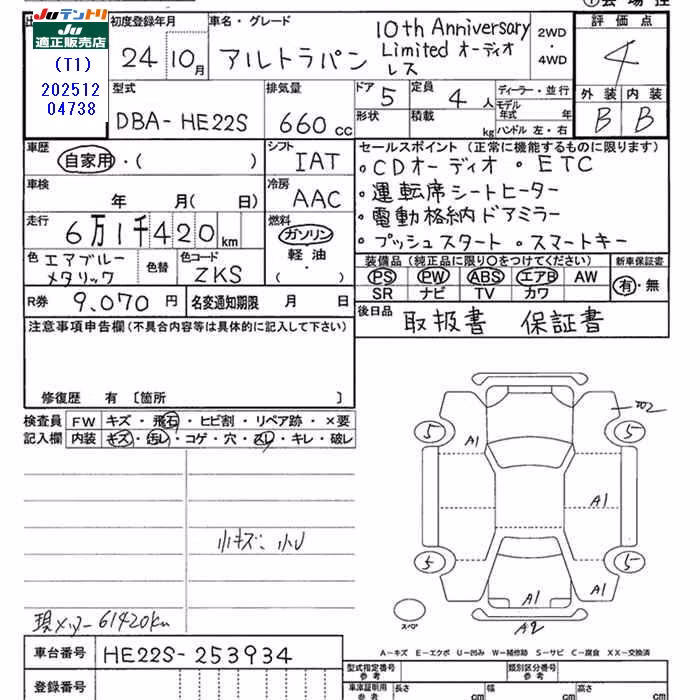 ① 会場控
Juテントリ
Ju適正販売店
(T1)
202512
04738
初度登録年月
24 10月
車名・グレード
アルトラパン 10th Anniversary
Limited オーディオ
レス
2WD
・
4WD
評価点
4
外装 内装
B B
型式
DBA-HE22S
排気量
660 cc
ドア 5
形状
定員 4人
積載 kg
ディーラー・並行
モデル
年式 年
ハンドル 左・右
車歴
自家用・( )
シフト
IAT
車検
年 月( 日)
冷房
AAC
走行
6万1千420km
燃料
ガソリン
軽油・
( )
色 エアブルー
メタリック
色替
色コード
ZKS
R券 9,070円
名変通知期限 月 日
セールスポイント(正常に機能するものに限ります)
・CDオーディオ ・ETC
・運転席シートヒーター
・電動格納ドアミラー
・プッシュスタート ・スマートキー
装備品(純正品に限り○をつけてください)
PS PW ABS エアB AW
SR ナビ TV カワ
新車保証書
有・無
後日品
取扱書 保証書
注意事項申告欄(不具合内容等は具体的に記入して下さい)
修復歴 有〔箇所 〕
検査員
記入欄
FW キズ・飛石・ヒビ割・リペア跡・×要
内装 キズ・汚レ・コゲ・穴・スレ・キレ・破レ
小キズ、小U
現メーター61420km
5 5
A1
A1
5 5
A1
A1
A2
スペア
A-キズ E-エクボ U-凹み W-補修跡 S-サビ C-腐食 XX-交換済
車台番号 HE22S-253934
登録番号
型式指定番号
参考
類別区分番号
参考
車庫証明用
参考
長さ cm
幅 cm
高さ cm